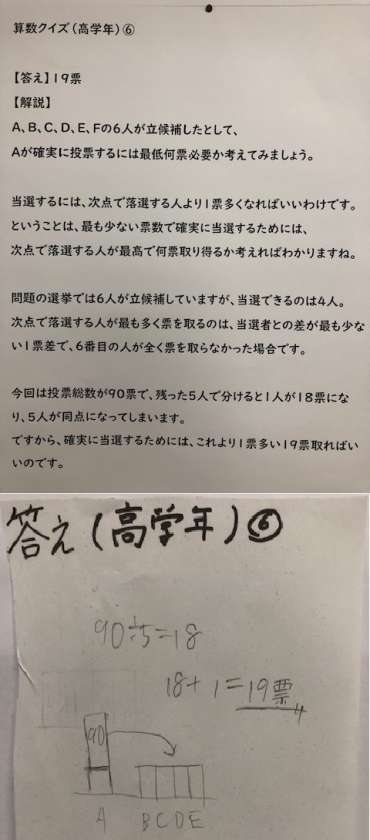 算数クイズ(高学年)⑥
【答え】19票
【解説】
A、B、C、D、E、Fの6人が立候補したとして、
Aが確実に投票するには最低何票必要か考えてみましょう。
当選するには、次点で落選する人より1票多くなればいいわけです。
ということは、最も少ない票数で確実に当選するためには、
次点で落選する人が最高で何票取り得るか考えればわかりますね。
問題の選挙では6人が立候補していますが、当選できるのは4人。
次点で落選する人が最も多く票を取るのは、当選者との差が最も少な
い1票差で、6番目の人が全く票を取らなかった場合です。
今回は投票総数が90票で、残った5人で分けると1人が18票にな
り、5人が同点になってしまいます。
ですから、確実に当選するためには、これより1票多い19票取ればい
いのです。
答え(高学年)⑥
90÷5=18
18+1=19票
90
A B C D E